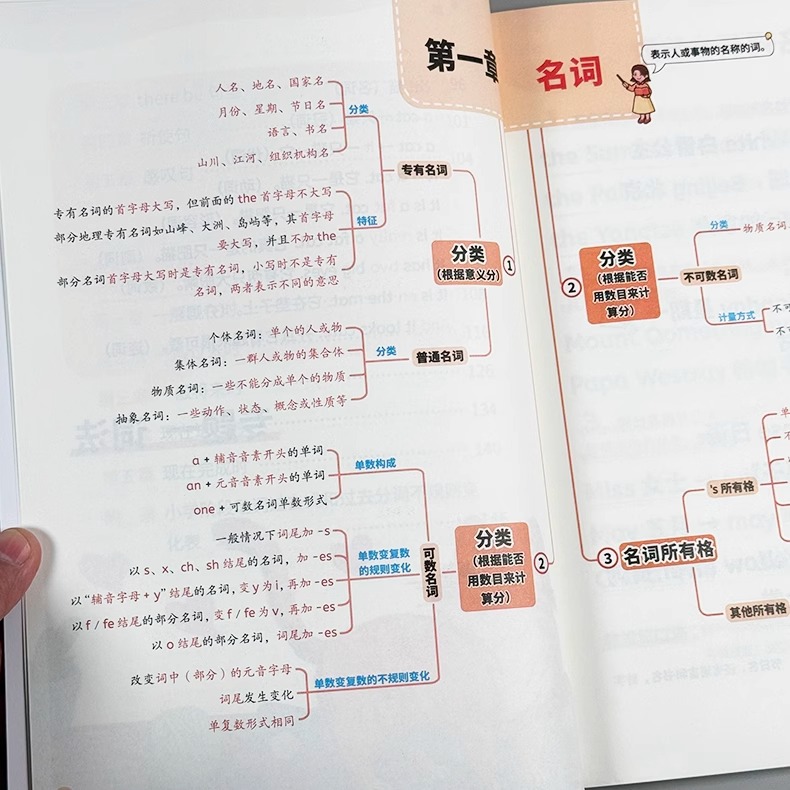 第一章
名词
表示人或事物的名称的词。
人名、地名、国家名
月份、星期、节日名
语言、书名
山川、江河、组织机构名
分类
专有名词
专有名词的首字母大写，但前面的 the 首字母不大写
部分地理专有名词如山峰、大洲、岛屿等，其首字母
要大写，并且不加 the
部分名词首字母大写时是专有名词，小写时不是专有
名词，两者表示不同的意思
特征
分类
（根据意义分）
①
个体名词：单个的人或物
集体名词：一群人或物的集合体
物质名词：一些不能分成单个的物质
抽象名词：一些动作、状态、概念或性质等
分类
普通名词
a + 辅音音素开头的单词
an + 元音音素开头的单词
one + 可数名词单数形式
单数构成
一般情况下词尾加 -s
以 s、x、ch、sh 结尾的名词，加 -es
以“辅音字母 + y”结尾的名词，变 y 为 i，再加 -es
以 f / fe 结尾的部分名词，变 f / fe 为 v，再加 -es
以 o 结尾的部分名词，词尾加 -es
单数变复数
的规则变化
可数名词
分类
（根据能否
用数目来计
算分）
②
改变词中（部分）的元音字母
词尾发生变化
单复数形式相同
单数变复数的不规则变化
②
分类
（根据能否
用数目来计
算分）
分类
物质名词
不可数名词
计量方式
不可
不
③
名词所有格
's 所有格
单
其他所有格